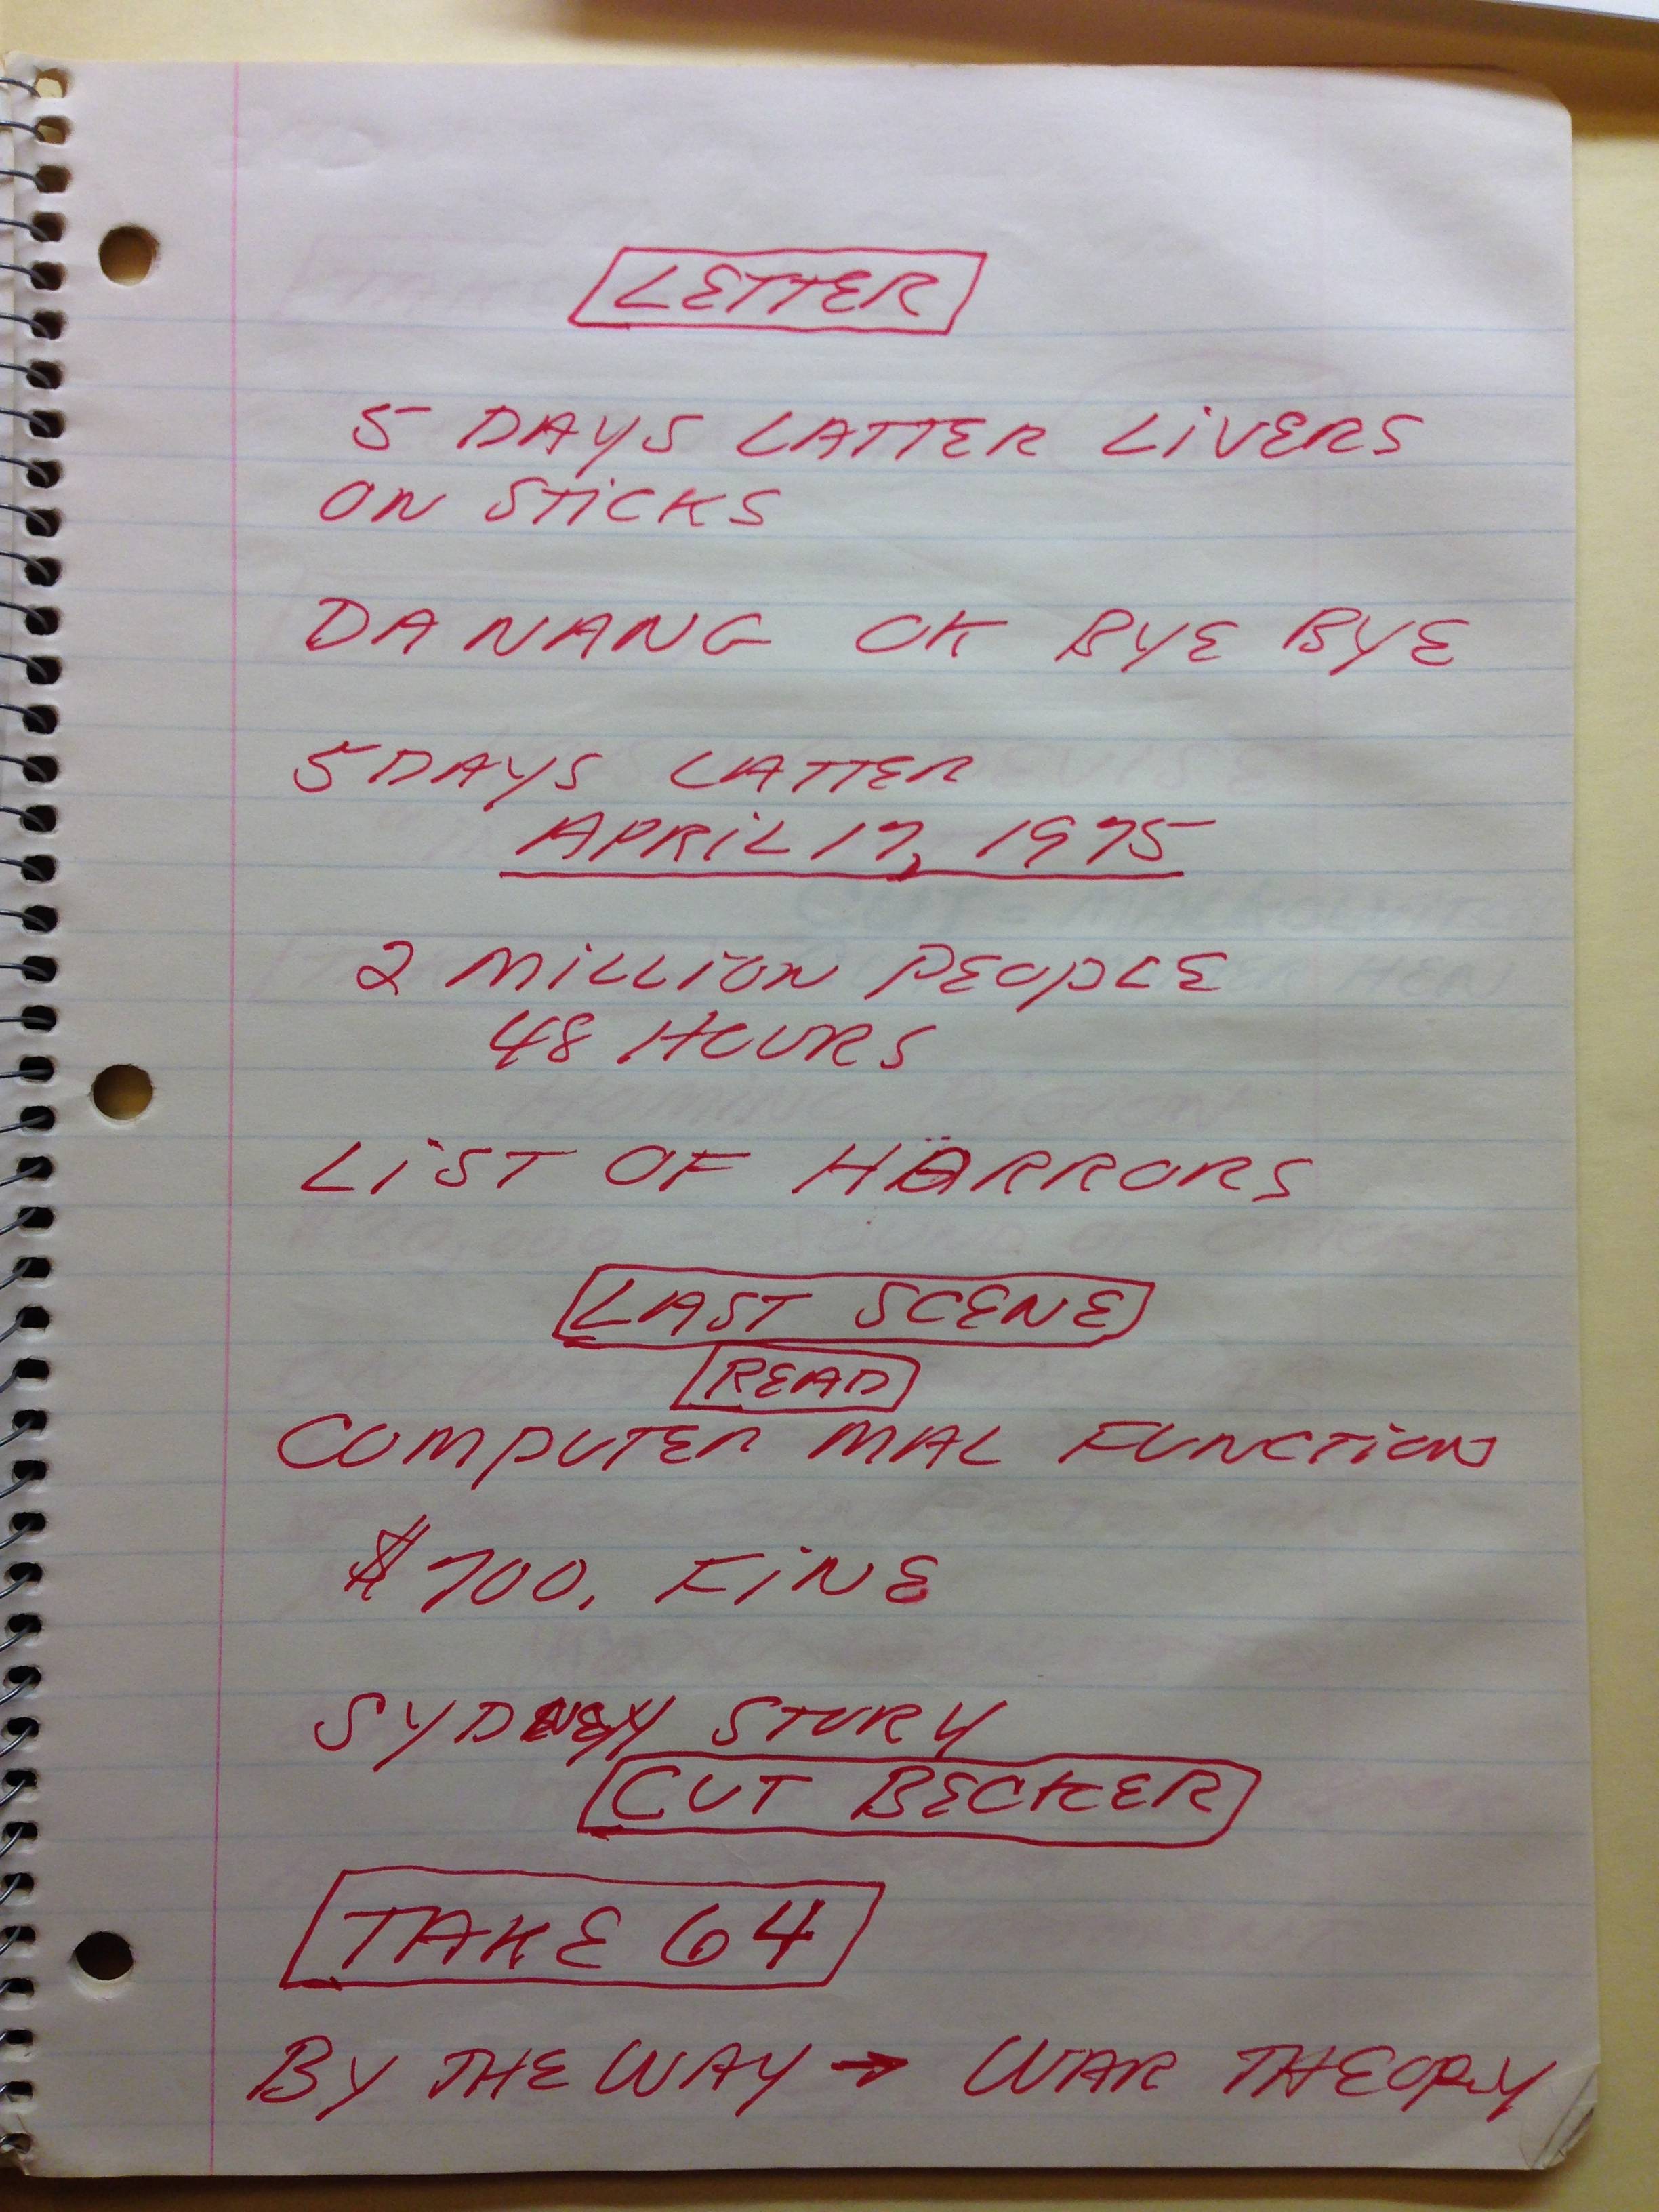 LETTER
5 DAYS LATTER LIVERS
ON STICKS
DA NANG OK BYE BYE
5 DAYS LATTER
APRIL 17, 1975
2 MILLION PEOPLE
48 HOURS
LIST OF HORRORS
LAST SCENE
READ
COMPUTER MAL FUNCTION
$700. FINE
SYDNEY STORY
CUT BECKER
TAKE 64
BY THE WAY → WAR THEORY